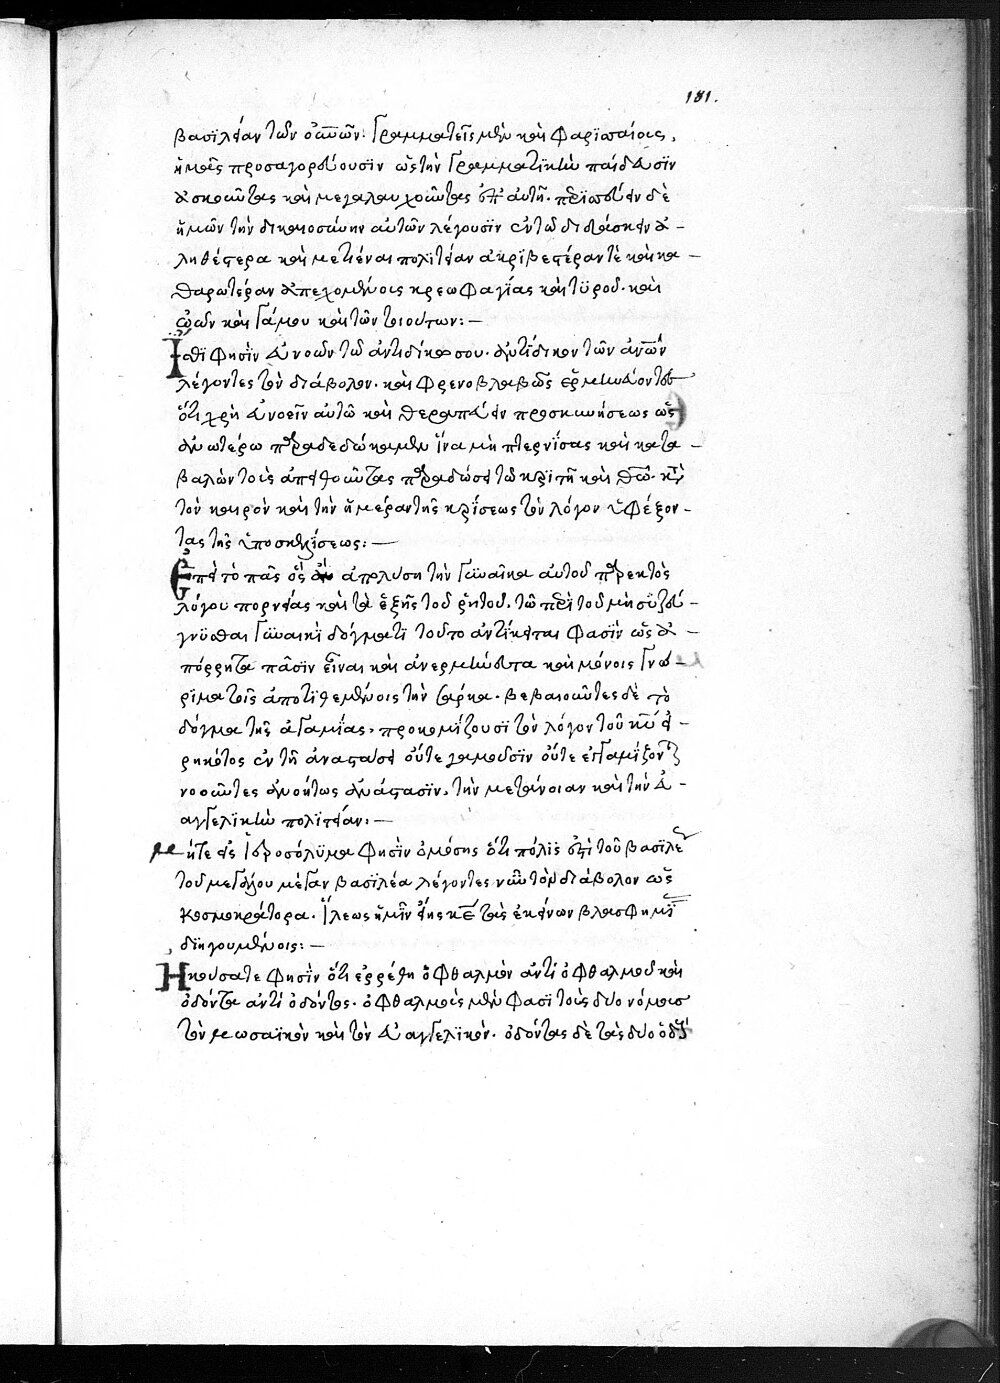 181.
βασιλείαν τῶν οὐνῶν: Γραμματεῖς μὲν καὶ Φαρισαίοις,
ἡμᾶς προσαγορεύουσϊν ὡς τὴν Γραμματϊκὴν παίδευσϊν
ἀσκοῦντας καὶ μεγαλαυχοῦντας ἐπ' αὐτῆ. περισσεύειν δὲ
ἡμῶν τὴν δικαιοσύνην αὐτῶν λέγουσϊν ἐν τῶ διδάσκειν ἀ-
ληθέστερα καὶ μετιέναι πολιτείαν ἀκριβεστέραν τὲ καὶ κα-
θαρωτέραν ἀπεχομένοις κρεωφαγίας καὶ τυροῦ. καὶ
ὠῶν καὶ Γάμου καὶ τῶν τιούτων:—
Ἴσθϊ φησῒν εὐνοῶν τῶ ἀντιδίκω σου. ἀντίδικον τῶν ἀνῶν
λέγοντες τὸν διάβολον. καὶ φρενοβλαβῶς ἑρμηνεύοντες
ὅτι χρὴ εὐνοεῖν αὐτῶ καὶ θεραπεύειν προσκυνήσεως ὡς
ἀνωτέρω παραδεδώκαμεν ἵνα μὴ πτερνίσας καὶ κατα-
βαλὼν τοὺς ἀπειθοῦντας παραδώσει τῶ κριτῆ καὶ θῶ. κατὰ
τὸν καιρὸν καὶ τὴν ἡμέραν τῆς κρίσεως τὸν λόγον ὑφέξον-
τας τῆς ὑποσκελίσεως:—
Εἶπε τὸ πᾶς ὃς ἂν ἀπολύση τὴν Γυναῖκα αὐτοῦ παρεκτὸς
λόγου πορνείας καὶ τὰ ἑξῆς τοῦ ῥητοῦ. τῶ περὶ τοῦ μὴ συζεύ-
γνϋσθαι Γυναικὶ δόγματϊ τοῦτο ἀντίκειται φασϊν ὡς ἀ-
πόρρητα πᾶσϊν εἶναι καὶ ἀνερμήνευτα καὶ μόνοις Γνώ-
ριμα τοῖς ἀποτϊθεμένοις τὴν σάρκα. βεβαιοῦντες δὲ τὸ
δόγμα τῆς ἀγαμίας, προκομίζουσϊ τὸν λόγον τοῦ κυ εἰ-
ρηκότος ἐν τῆ ἀναστάσει οὔτε γαμοῦσϊν οὔτε ἐκγαμίζονται
νοοῦντες ἀνοήτως ἀνάστασϊν, τὴν μετάνοιαν καὶ τὴν εὐ-
αγγελικὴν πολϊτείαν:—
μήτε εἰς Ἱεροσόλϋμα φησϊν ὀμόσης ὅτι πόλϊς ἐστὶ τοῦ βασϊλέως
τοῦ μεγάλου μέγαν βασϊλέα λέγοντες νῦν τὸν διάβολον ὡς
κοσμοκράτορα. Ἵλεως ἡμῖν εἴης κε τὰς ἐκείνων βλασφημίας
διηγουμένοις:—
Ἠκούσατε φησῒν ὅτι ἐρρέθη ὀφθαλμὸν ἀντὶ ὀφθαλμοῦ καὶ
ὀδόντα ἀντὶ ὀδόντος. ὀφθαλμοὺς μὲν φασὶ τοὺς δύο νόμους
τὸν μωσαϊκὸν καὶ τὸν εὐαγγελικὸν. ὀδόντας δὲ τὰς δύο ὁδοὺς